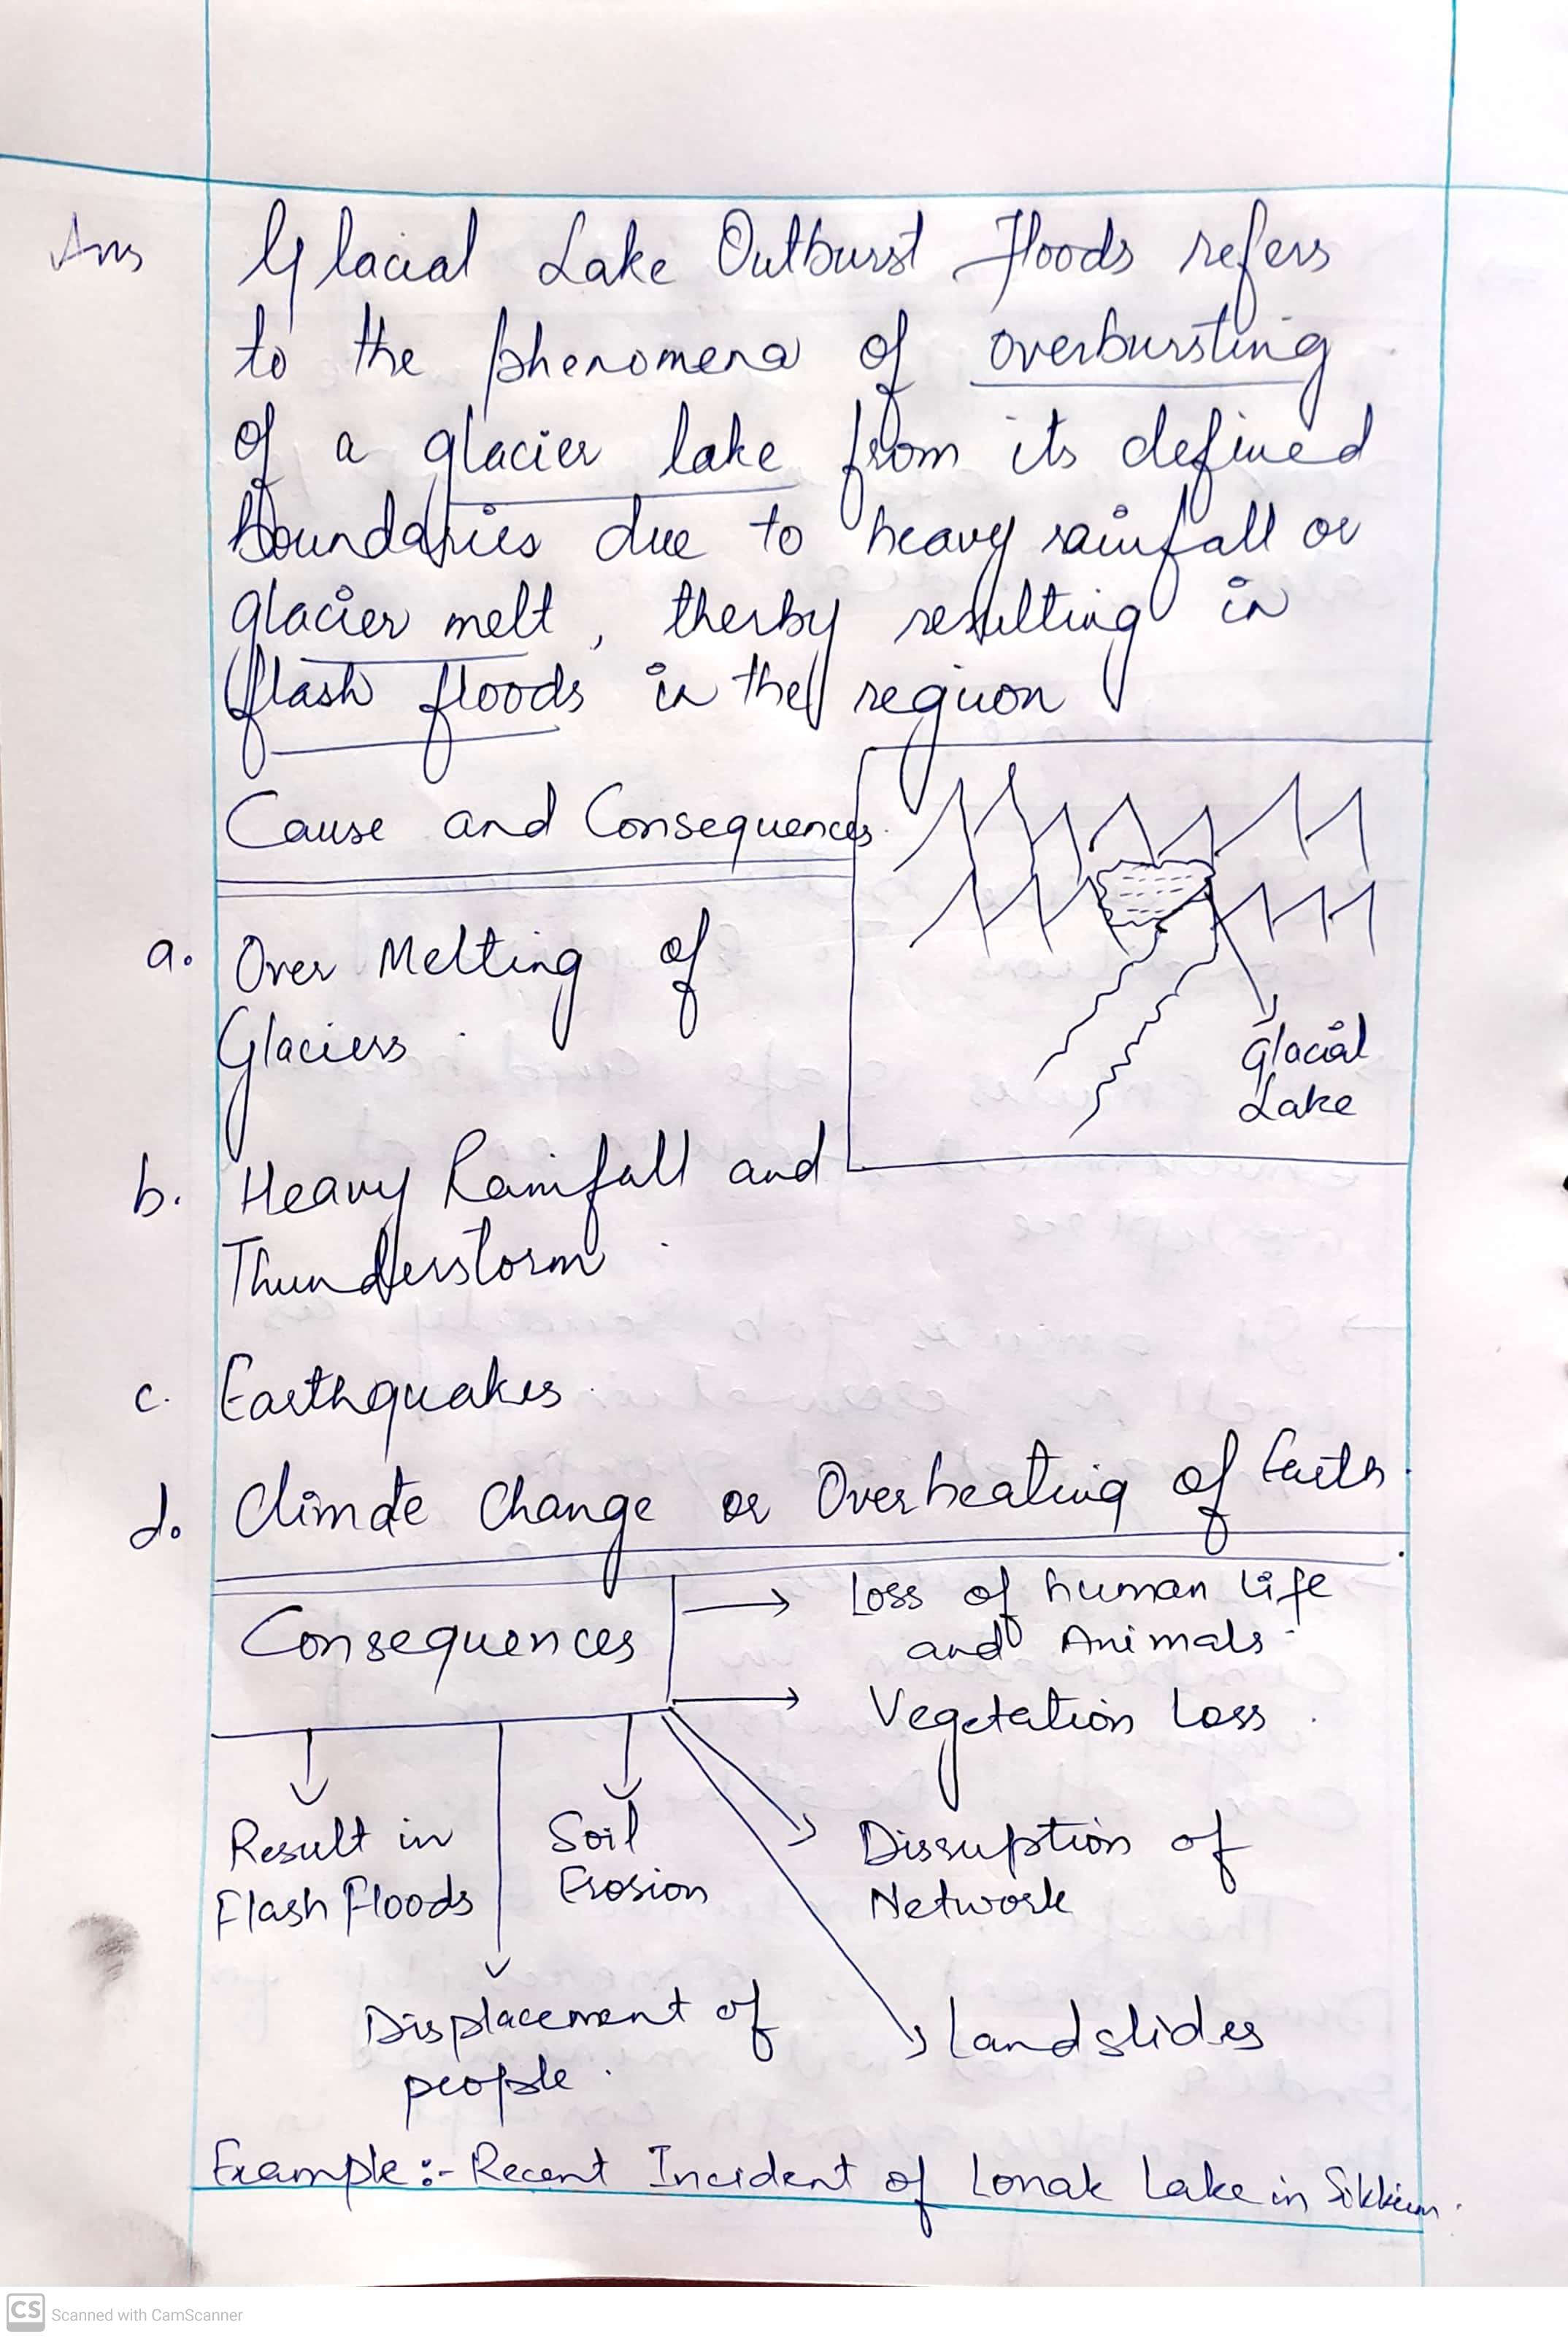 Ans Glacial Lake Outburst Floods refers
to the phenomena of overbursting
of a glacier lake from its defined
boundaries due to heavy rainfall or
glacier melt, therby resulting in
flash floods in the region
Cause and Consequences.
a. Over Melting of
Glaciers.
Glacial
Lake
b. Heavy Rainfall and
Thunderstorm.
c. Earthquakes.
d. Climate Change or Overheating of Earth.
Consequences
Loss of human life
and Animals.
Vegetation Loss.
Result in
Flash Floods
Soil
Erosion
Disruption of
Network
Displacement of
people.
Landslides
Example:- Recent Incident of Lonak Lake in Sikkim.
CS Scanned with CamScanner